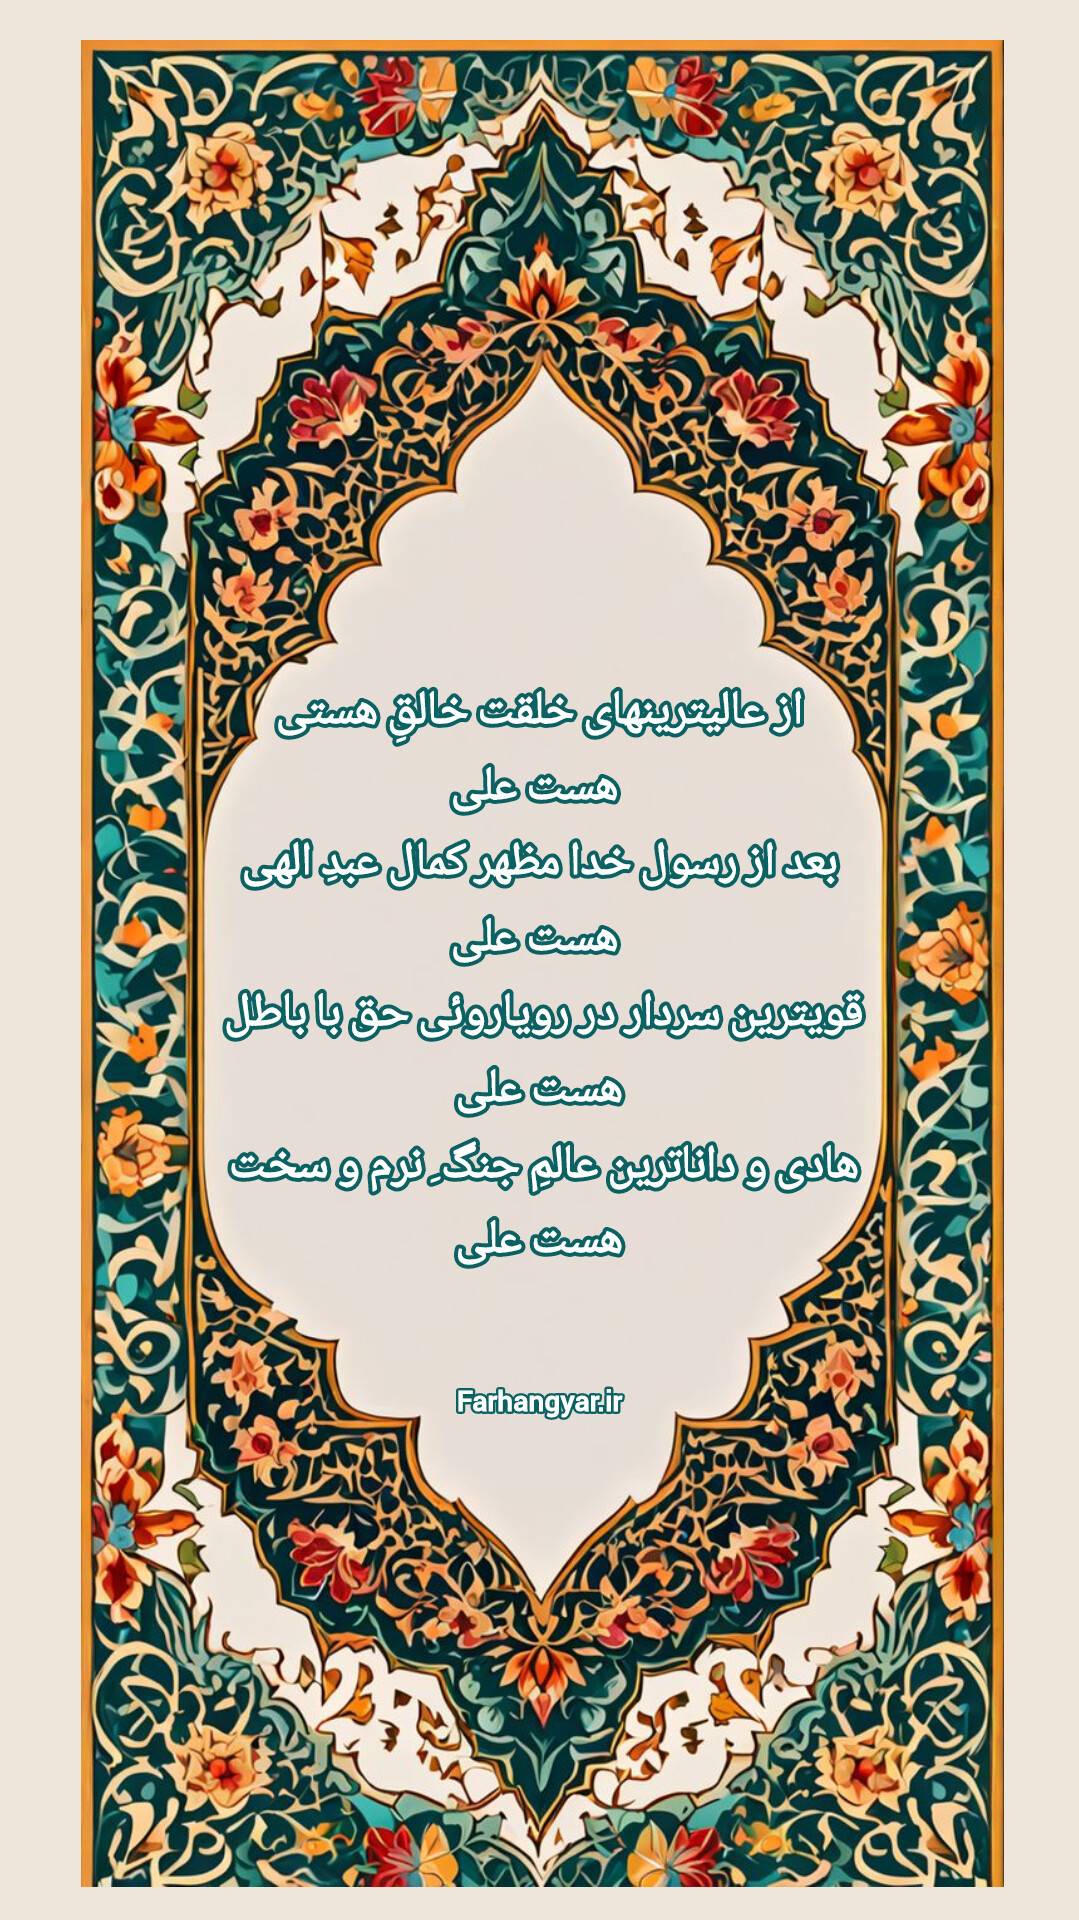 از عالیترینهای خلقت خالقِ هستی
هست علی
بعد از رسول خدا مظهر کمال عبدِ الهی
هست علی
قویترین سردار در رویاروئی حق با باطل
هست علی
هادی و داناترین عالمِ جنگ ِ نرم و سخت
هست علی
Farhangyar.ir